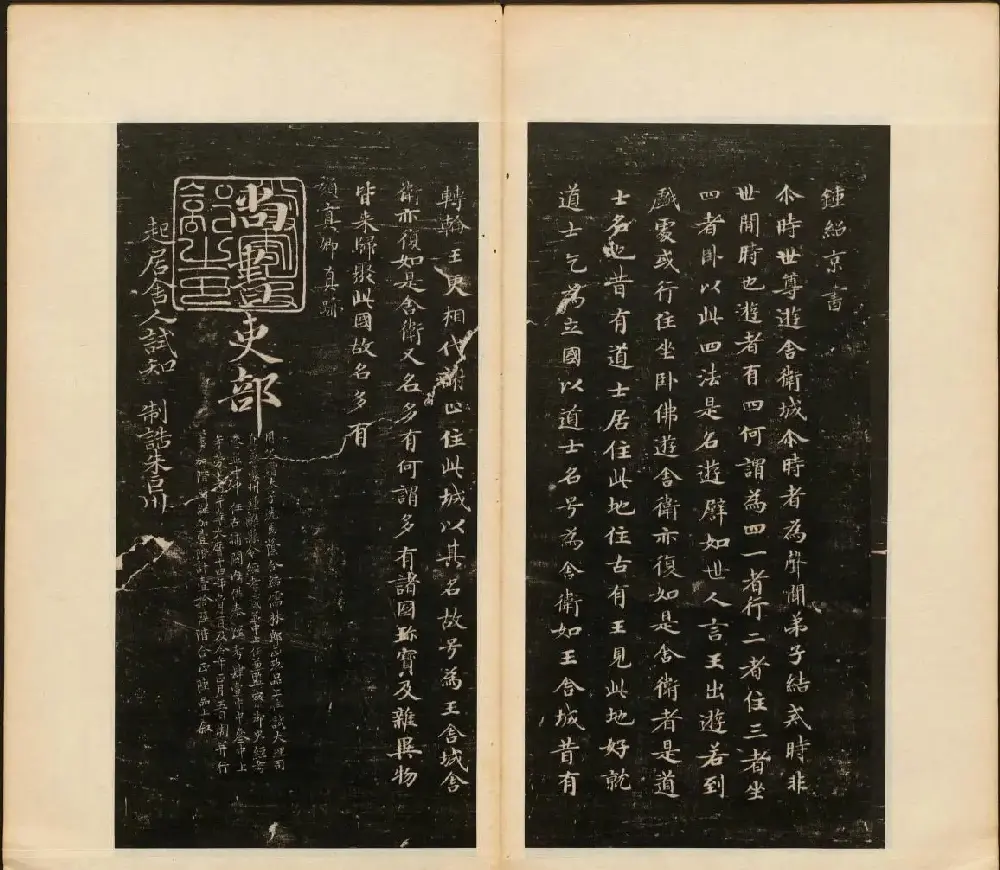 鍾紹京書
尒時世尊遊舍衛城尒時者為聲聞弟子結戒時非
世間時也遊者有四何謂為四一者行二者住三者坐
四者卧以此四法是名遊譬如世人言王出遊若到
戲處或行住坐卧佛遊舍衛亦復如是舍衛者是道
士名也昔有道士居住此地住古有王見此地好就
道士乞為立國以道士名号為舍衛如王舍城昔有
轉輪王更相代謝止住此城以其名故号為王舍城舍
衛亦復如是舍衛又名多有何謂多有諸國珎寶及雜異物
皆来歸聚此國故名多有
顏真卿真跡
尚書吏部
起居舍人試知 制誥朱巨川